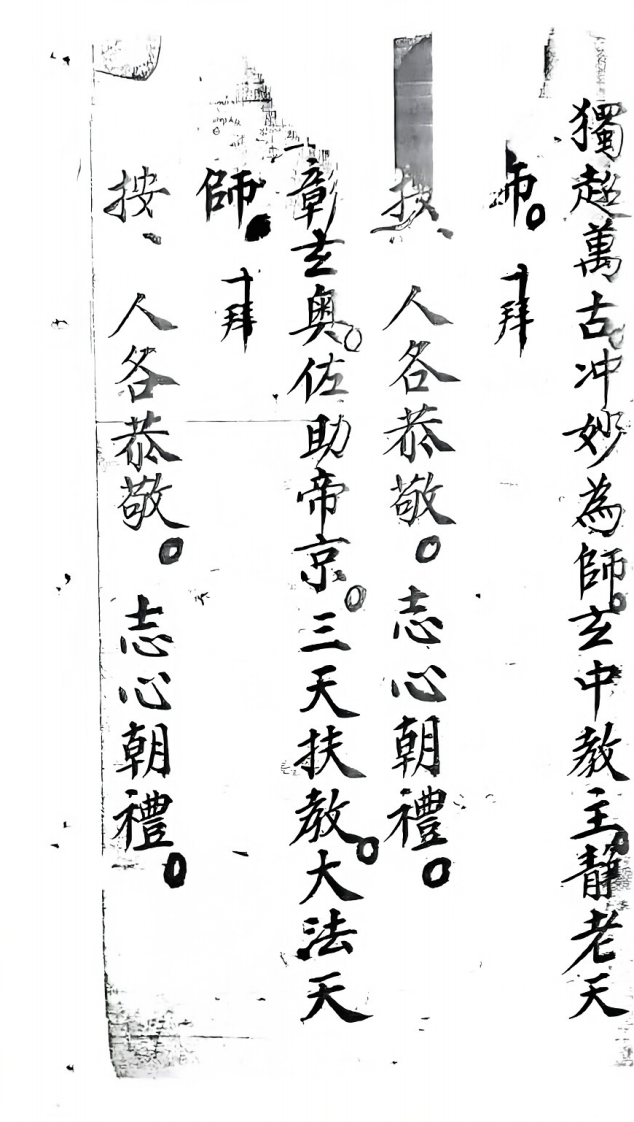 獨超萬古。冲妙為師。玄中教主。靜老天
。十拜
人各恭敬。志心朝禮。
彰玄奥。佐助帝京。三天扶教。大法天
師。十拜
按、人各恭敬。志心朝禮。